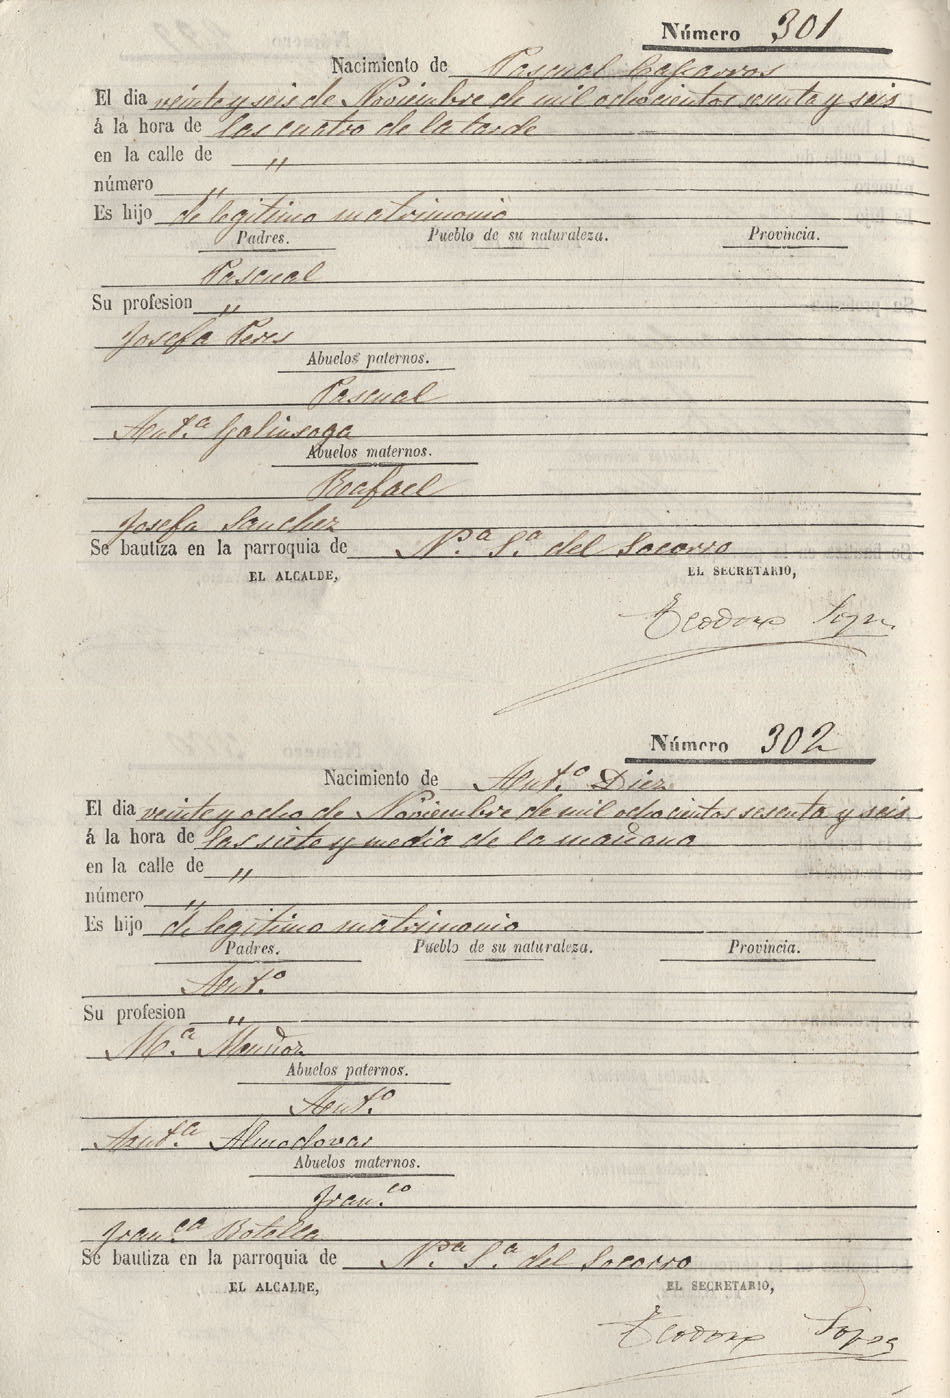 Número 301
Nacimiento de Pascual Cafarros
El dia veinte y seis de Noviembre de mil ochocientos sesenta y seis
á la hora de las cuatro de la tarde
en la calle de "
número "
Es hijo de legitimo matrimonio
Padres. Pueblo de su naturaleza. Provincia.
Pascual
Su profesion "
Josefa Peres
Abuelos paternos.
Pascual
Ant.ª Galinsoga
Abuelos maternos.
Rafael
Josefa Sanchez
Se bautiza en la parroquia de N.ª S.ª del Socorro
EL ALCALDE, EL SECRETARIO,
Teodoro
Número 302
Nacimiento de Ant.º Diez
El dia veinte y ocho de Noviembre de mil ochocientos sesenta y seis
á la hora de las siete y media de la mañana
en la calle de "
número "
Es hijo de legitimo matrimonio
Padres. Pueblo de su naturaleza. Provincia.
Ant.º
Su profesion "
M.ª Muñoz
Abuelos paternos.
Ant.º
Ant.ª Almodovar
Abuelos maternos.
Fran.co
Fran.ca Botella
Se bautiza en la parroquia de N.ª S.ª del Socorro
EL ALCALDE, EL SECRETARIO,
Teodoro